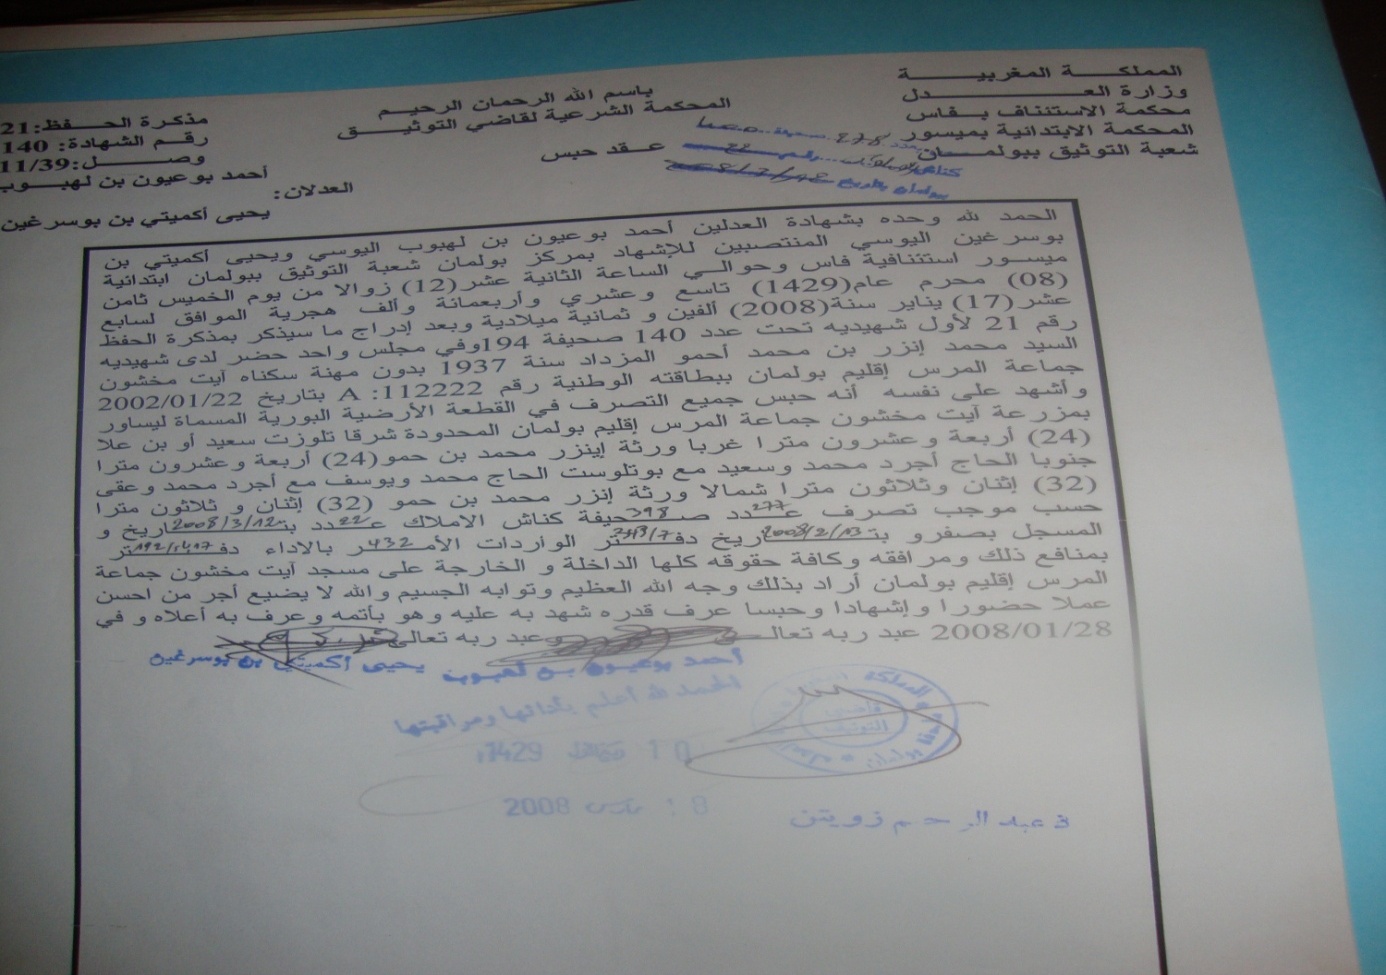 المملكة المغربية
وزارة العدل
محكمة الاستئناف بفاس
المحكمة الابتدائية بميسور
شعبة التوثيق ببولمان
باسم الله الرحمان الرحيم
المحكمة الشرعية لقاضي التوثيق
عقد حبس
عدد 278 صحيفة
كناش الأملاك رقم 22
بولمان بتاريخ
مذكرة الحفظ: 21
رقم الشهادة: 140
وصل: 11/39
العدلان:
أحمد بوعيون بن لهبوب
يحيى أكميتي بن بوسرغين
الحمد لله وحده بشهادة العدلين أحمد بوعيون بن لهبوب اليوسي ويحيى أكميتي بن
بوسرغين اليوسي المنتصبين للإشهاد بمركز بولمان شعبة التوثيق ببولمان ابتدائية
ميسور استئنافية فاس وحوالي الساعة الثانية عشر(12) زوالا من يوم الخميس ثامن
(08) محرم عام(1429) تاسع وعشري وأربعمانة وألف هجرية الموافق لسابع
عشر(17) يناير سنة(2008) ألفين و ثمانية ميلادية وبعد إدراج ما سيذكر بمذكرة الحفظ
رقم 21 لأول شهيديه تحت عدد 140 صحيفة 194وفي مجلس واحد حضر لدى شهيديه
السيد محمد إنزر بن محمد أحمو المزداد سنة 1937 بدون مهنة سكناه آيت مخشون
جماعة المرس إقليم بولمان ببطاقته الوطنية رقم A :112222 بتاريخ 2002/01/22
وأشهد على نفسه أنه حبس جميع التصرف في القطعة الأرضية البورية المسماة ليساور
بمزرعة آيت مخشون جماعة المرس إقليم بولمان المحدودة شرقا تلوزت سعيد أو بن علا
(24) أربعة وعشرون مترا غربا ورثة إينزر محمد بن حمو(24) أربعة وعشرون مترا
جنوبا الحاج أجرد محمد وسعيد مع بوتلوست الحاج محمد ويوسف مع أجرد محمد وعقى
(32) إثنان وثلاثون مترا شمالا ورثة إنزر محمد بن حمو (32) إثنان و ثلاثون مترا
حسب موجب تصرف عدد 277 صحيفة 398 كناش الاملاك عدد 22 بتاريخ 2008/3/12 و
المسجل بصفرو بتاريخ 2008/2/13 دفتر الواردات الأمر 432 بالاداء دفتر
بمنافع ذلك ومرافقه وكافة حقوقه كلها الداخلة و الخارجة على مسجد آيت مخشون جماعة
المرس إقليم بولمان أراد بذلك وجه الله العظيم وتوابه الجسيم والله لا يضيع أجر من احسن
عملا حضورا وإشهادا وحبسا عرف قدره شهد به عليه وهو بأتمه وعرف به أعلاه و في
2008/01/28 عبد ربه تعالى وعبد ربه تعالى
أحمد بوعيون بن لهبوب
يحيى أكميتي بن بوسرغين
الحمد لله أعلم بأدائها ومراقبتها
10 1429
18 مارس 2008
قاضي
التوثيق
عبد الرحيم زويتن